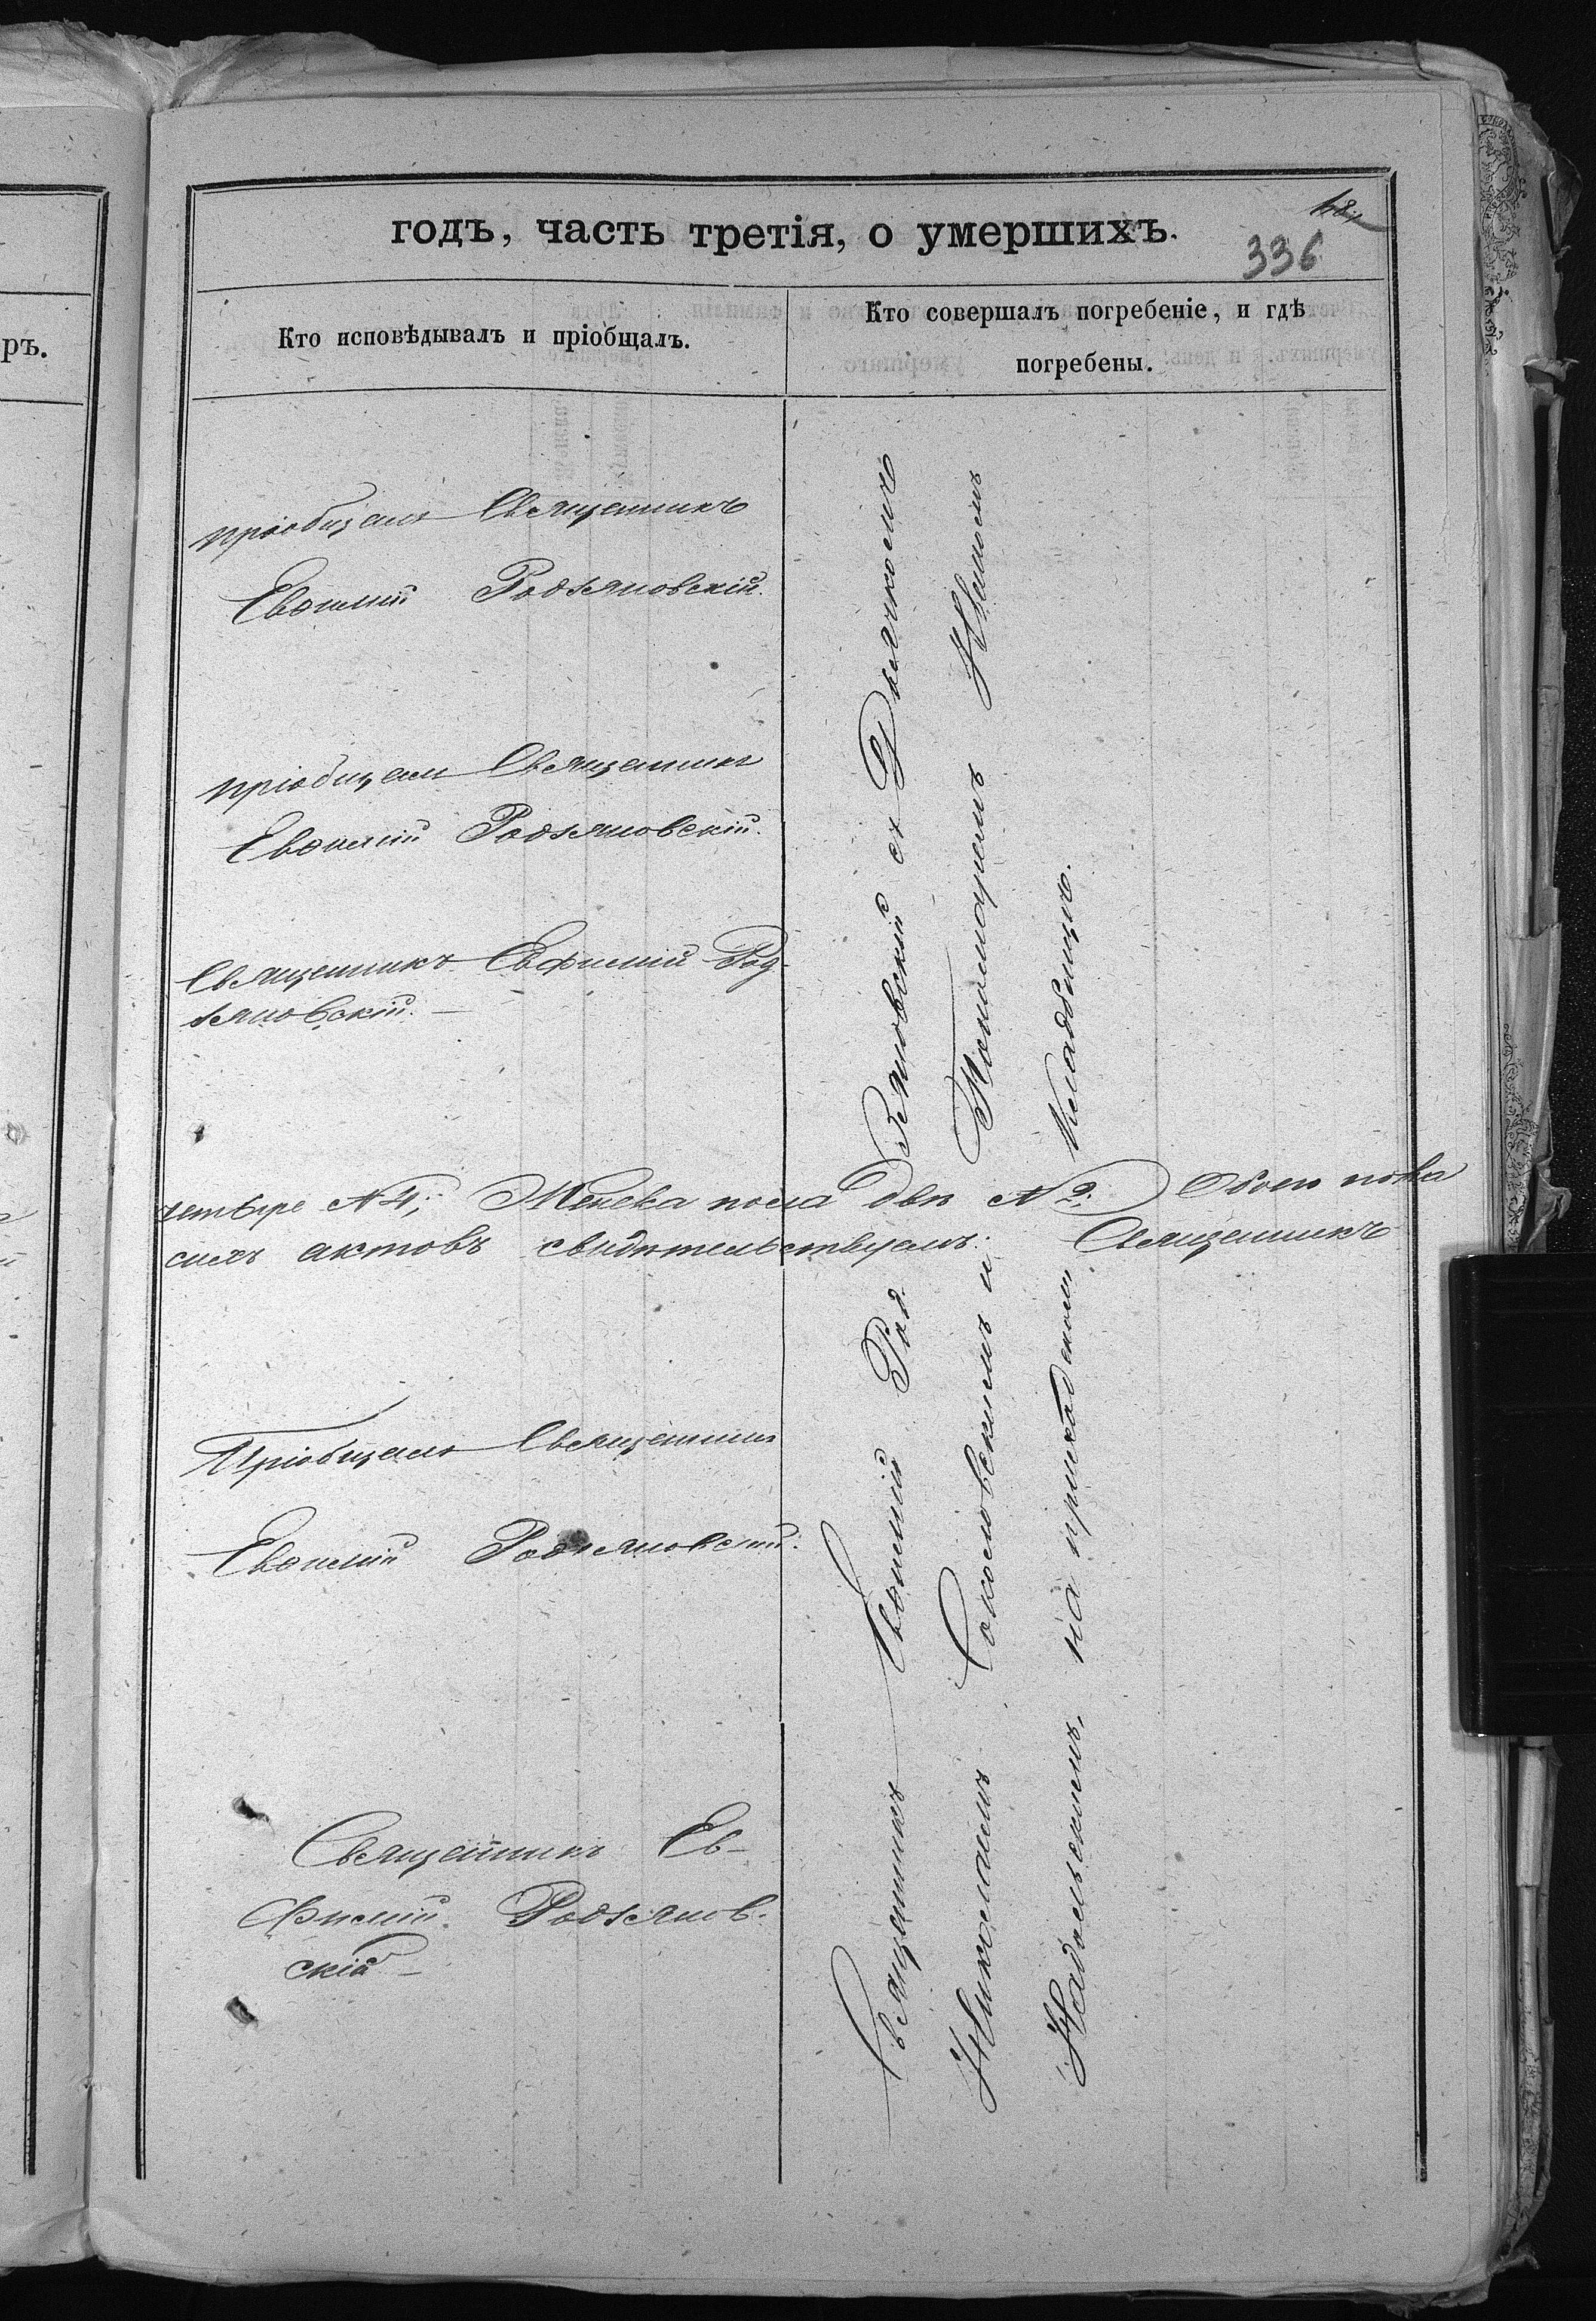 годъ, часть третія, о умершихъ.
336
ръ.
Кто исповѣдывалъ и пріобщалъ.
Кто совершалъ погребеніе, и гдѣ
погребены.
пріобщалъ Священникъ
Евѳимій Родзяновскій.
пріобщалъ Священникъ
Евѳимій Родзяновскій.
Священникъ Евфимій Род-
зяновскій.
четыре № 4; Женска пола двѣ № 2. Обоего пола
сихъ актовъ свидѣтельствуемъ: Священникъ
Пріобщалъ Священникъ
Евѳимій Родзяновскій.
Священникъ Ев-
фимій Родзянов-
скій
Священникъ Евѳимій Род-
зяновскій съ Дьячкомъ
Николаемъ Соколовскимъ и Пономаремъ Иваномъ
Надольскимъ, на приходскомъ Кладбищѣ.